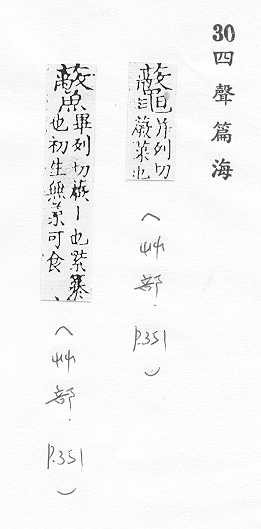 30 四聲篇海
虌 并列切
薇菜也
(艸部. P.351)
畢列切蕨丨也紫綦
也初生無葉可食
(艸部. P.351)